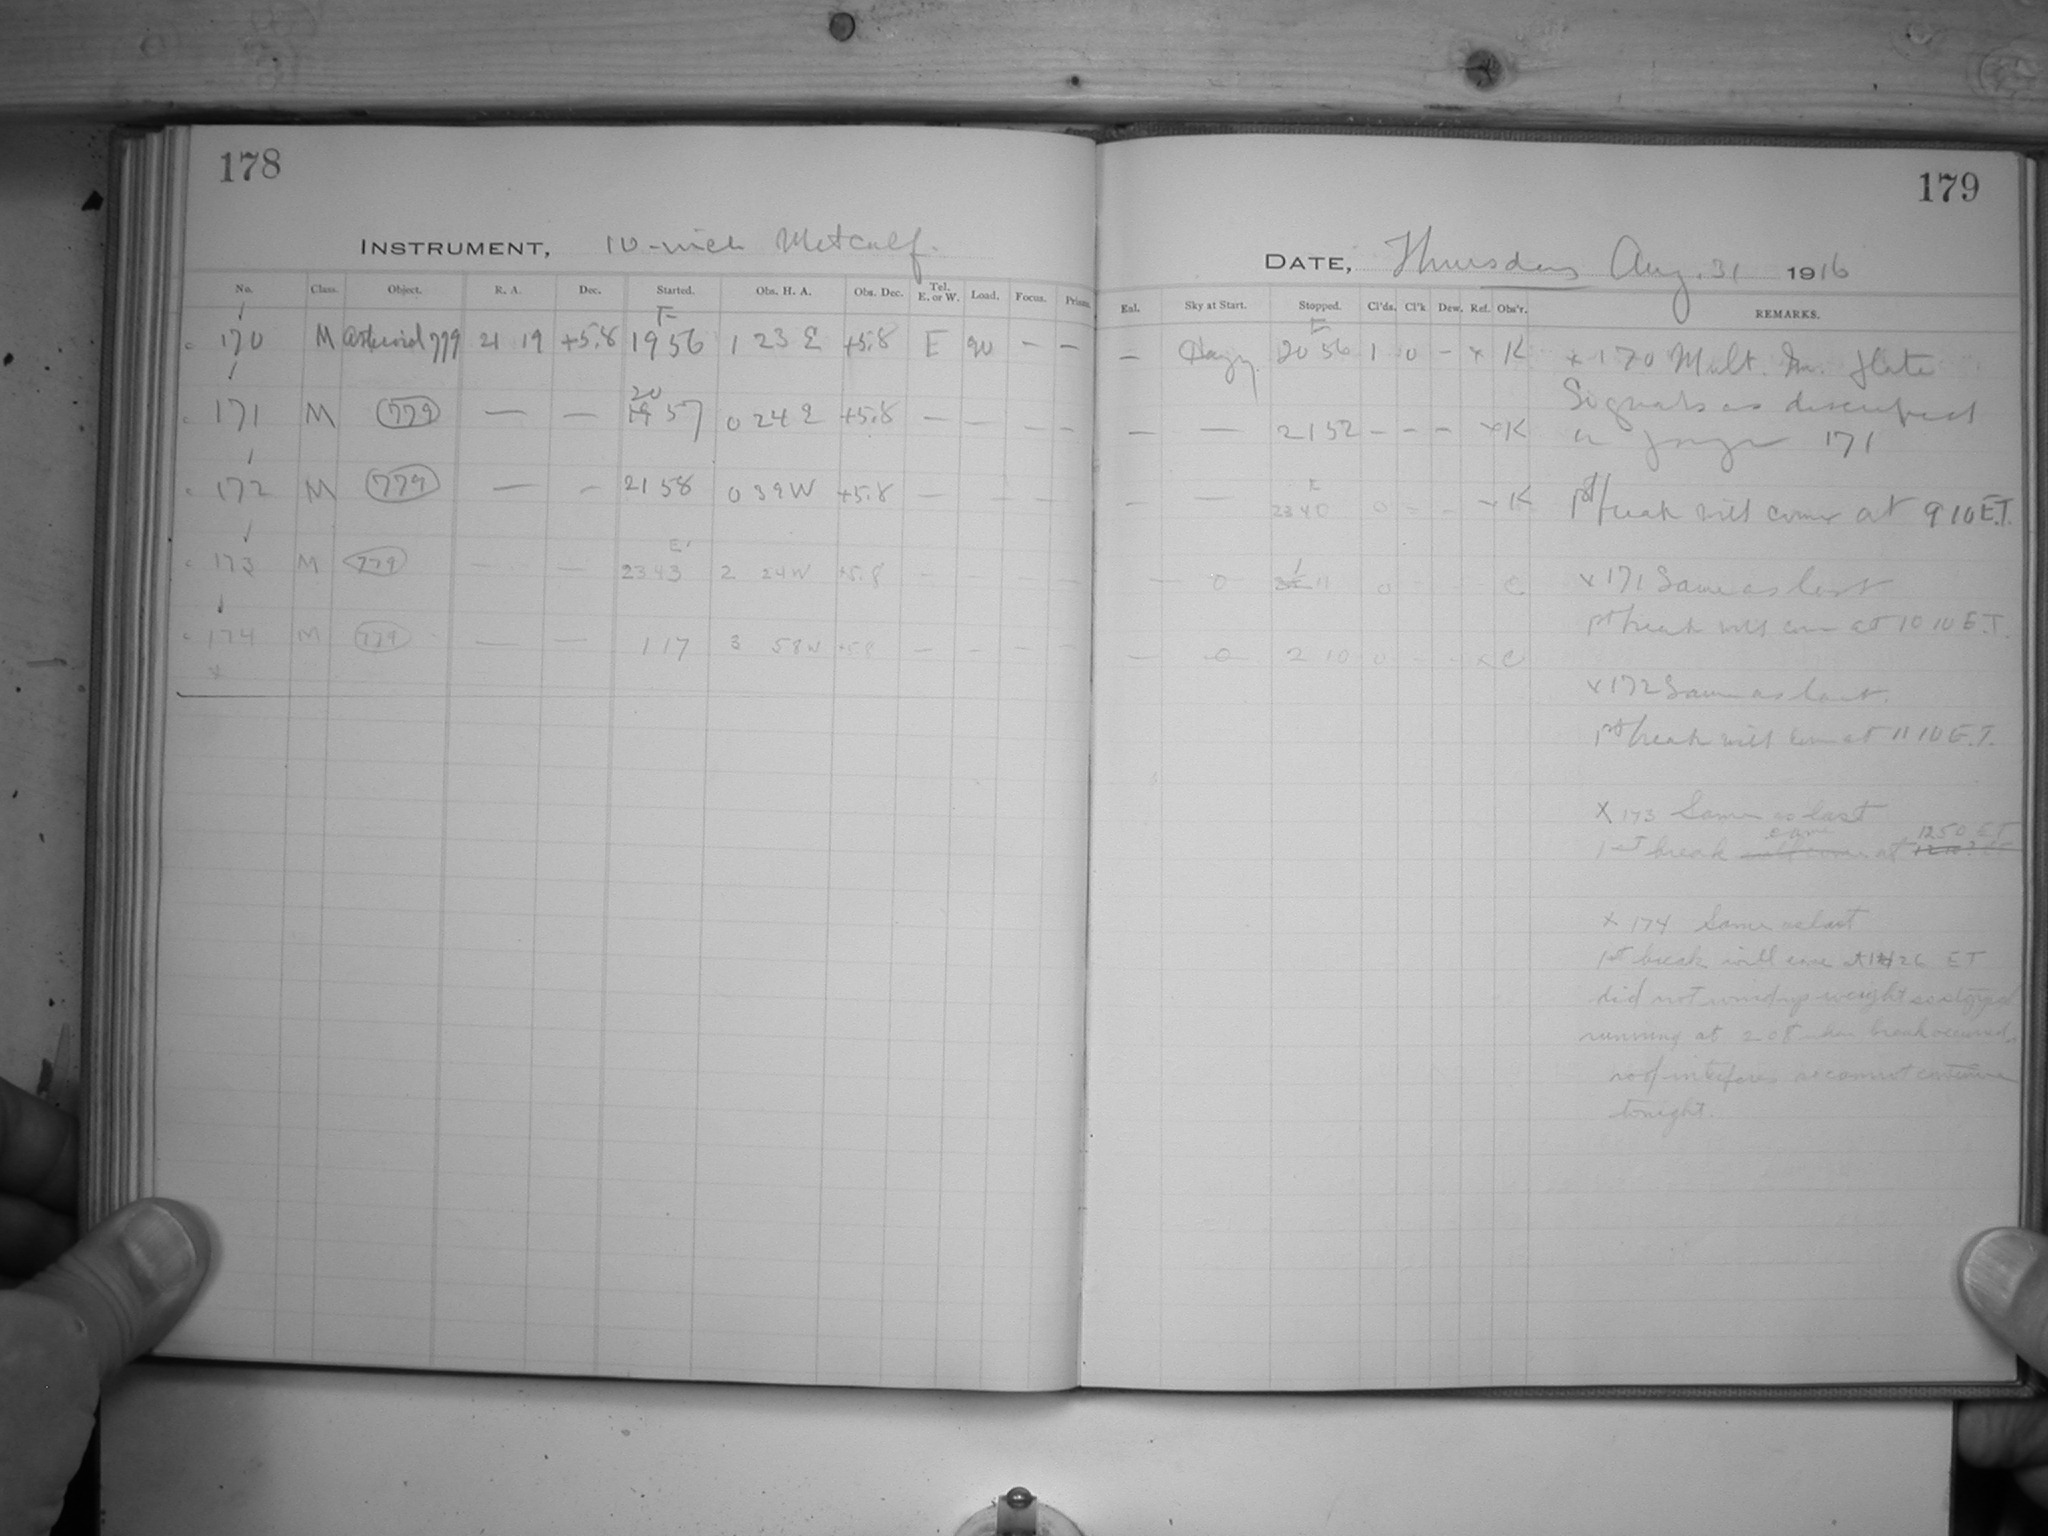 178
INSTRUMENT, 10-inch Metcalf.
No. Class. Object. R. A. Dec. Started. Obs. H. A. Obs. Dec. Tel. E. or W. Load. Focus. Prism.
170 M Asteroid 779 21 19 +5.8 E 1956 1 23 E +5.8 E 90 — —
171 M 779 — — 20 19 57 0 24 E +5.8 — — — —
172 M 779 — — 2158 0 39 W +5.8 — — — —
173 M 779 — — E 2343 2 24 W +5.8 — — — —
174 M 779 — — 1 17 3 58 W +5.8 — — — —
*
179
DATE, Thursday Aug. 31 1916
Exl. Sky at Start. Stopped. Cl'ds. Cl'k Dew. Ref. Obs'r. REMARKS.
— Hazy E 20 56 1 0 – x K x 170 Mult. Plate
Signals as described
— — 2152 – – – x K on page 171
— — E 2340 0 – – x K 1st break will come at 9 10 E.T.
— 0 1 11 0 – – C x 171 Same as last
1st break will come at 10 10 E.T.
— 0 2 10 0 – – x C
x 172 Same as last.
1st break will come at 11 10 E.T.
x 173 Same as last
came 1250 ET
1st break will come at
x 174 Same as last
1st break will come at 26 ET
did not wind up weight so stopped
running at 2 08 when break occurred.
roof interferes so cannot continue
tonight.